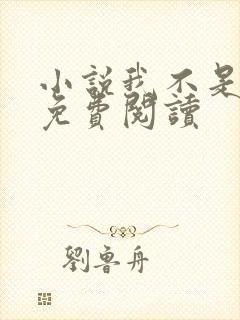 小説我不是
免費閱讀
劉魯舟